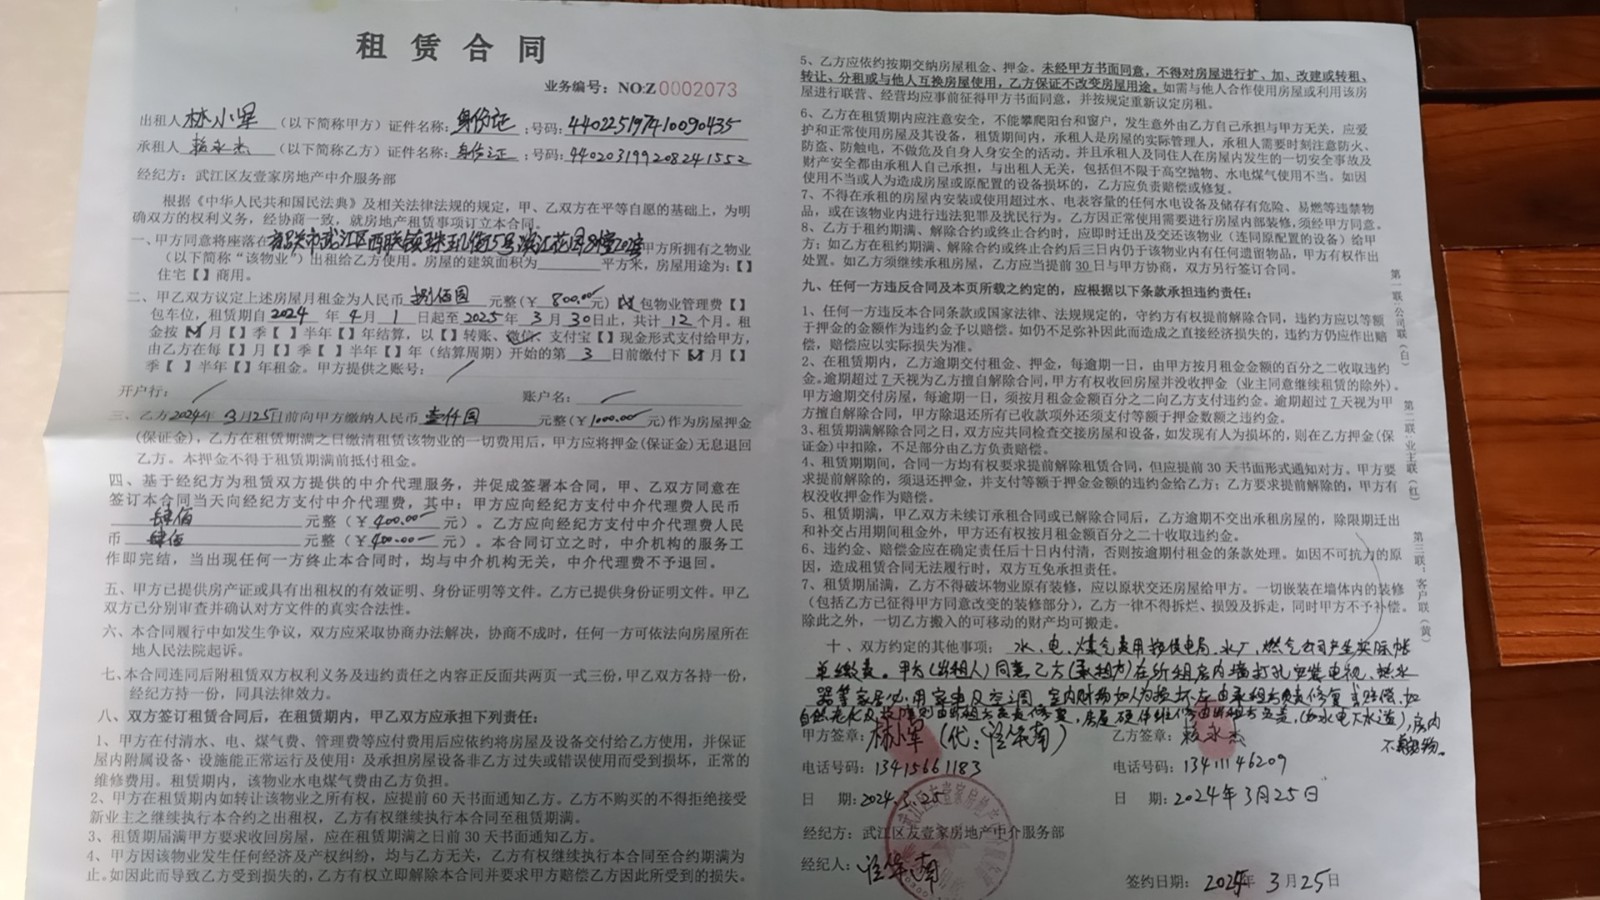 租赁合同
业务编号：NO:Z0002073
出租人林小军（以下简称甲方）证件名称：身份证；号码：440225197410090435
承租人赖永杰（以下简称乙方）证件名称：身份证；号码：440203199208241552
经纪方：武江区友壹家房地产中介服务部
根据《中华人民共和国民法典》及相关法律法规的规定，甲、乙双方在平等自愿的基础上，为明
确双方的权利义务，经协商一致，就房地产租赁事项订立本合同。
一、甲方同意将座落在韶关市武江区西联镇 甲方所拥有之物业
（以下简称“该物业”）出租给乙方使用。房屋的建筑面积为 平方米，房屋用途为：【】
住宅【】商用。
二、甲乙双方议定上述房屋月租金为人民币捌佰圆元整（￥800.00元）包物业管理费【】
包车位，租赁期自2024年4月1日起至2025年3月30日止，共计12个月。租
金按月【】季【】半年【】年结算，以【】转账、微信、支付宝【】现金形式支付给甲方，
由乙方在每【】月【】季【】半年【】年（结算周期）开始的第3日前缴付下月【】
季【】半年【】年租金。甲方提供之账号：
开户行： 账户名：
三、乙方2024年3月25日前向甲方缴纳人民币壹仟圆元整（￥1000.00元）作为房屋押金
(保证金)，乙方在租赁期满之日缴清租赁该物业的一切费用后，甲方应将押金(保证金)无息退回
乙方。本押金不得于租赁期满前抵付租金。
四、基于经纪方为租赁双方提供的中介代理服务，并促成签署本合同，甲、乙双方同意在
签订本合同当天向经纪方支付中介代理费，其中：甲方应向经纪方支付中介代理费人民币
肆佰元整（￥400.00元）。乙方应向经纪方支付中介代理费人民
币肆佰元整（￥400.00元）。本合同订立之时，中介机构的服务工
作即完结，当出现任何一方终止本合同时，均与中介机构无关，中介代理费不予退回。
五、甲方已提供房产证或具有出租权的有效证明、身份证明等文件。乙方已提供身份证明文件。甲乙
双方已分别审查并确认对方文件的真实合法性。
六、本合同履行中如发生争议，双方应采取协商办法解决，协商不成时，任何一方可依法向房屋所在
地人民法院起诉。
七、本合同连同后附租赁双方权利义务及违约责任之内容正反面共两页一式三份，甲乙双方各持一份，
经纪方持一份，同具法律效力。
八、双方签订租赁合同后，在租赁期内，甲乙双方应承担下列责任：
1、甲方在付清水、电、煤气费、管理费等应付费用后应依约将房屋及设备交付给乙方使用，并保证
屋内附属设备、设施能正常运行及使用；及承担房屋设备非乙方过失或错误使用而受到损坏，正常的
维修费用。租赁期内，该物业水电煤气费由乙方负担。
2、甲方在租赁期内如转让该物业之所有权，应提前60天书面通知乙方。乙方不购买的不得拒绝接受
新业主之继续执行本合约之出租权，乙方有权继续执行本合同至租赁期满。
3、租赁期届满甲方要求收回房屋，应在租赁期满之日前30天书面通知乙方。
4、甲方因该物业发生任何经济及产权纠纷，均与乙方无关，乙方有权继续执行本合同至合约期满为
止。如因此而导致乙方受到损失的，乙方有权立即解除本合同并要求甲方赔偿乙方因此所受到的损失。
5、乙方应依约按期交纳房屋租金、押金。未经甲方书面同意，不得对房屋进行扩、加、改建或转租、
转让、分租或与他人互换房屋使用，乙方保证不改变房屋用途。如需与他人合作使用房屋或利用该房
屋进行联营、经营均应事前征得甲方书面同意，并按规定重新议定房租。
6、乙方在租赁期内应注意安全，不能攀爬阳台和窗户，发生意外由乙方自己承担与甲方无关，应爱
护和正常使用房屋及其设备，租赁期间内，承租人是房屋的实际管理人，承租人需要时刻注意防火、
防盗、防触电，不做危及自身人身安全的活动。并且承租人及同住人在房屋内发生的一切安全事故及
财产安全都由承租人自己承担，与出租人无关，包括但不限于高空抛物、水电煤气使用不当。如因
使用不当或人为造成房屋或原配置的设备损坏的，乙方应负责赔偿或修复。
7、不得在承租的房屋内安装或使用超过水、电表容量的任何水电设备及储存有危险、易燃等违禁物
品，或在该物业内进行违法犯罪及扰民行为。乙方因正常使用需要进行房屋内部装修，须经甲方同意。
8、乙方于租约期满、解除合约或终止合约时，应即时迁出及交还该物业(连同原配置的设备）给甲
方；如乙方在租约期满、解除合约或终止合约后三日内仍于该物业内有任何遗留物品，甲方有权作出
处置。如乙方须继续承租房屋，乙方应当提前30日与甲方协商，双方另行签订合同。
九、任何一方违反合同及本页所载之约定的，应根据以下条款承担违约责任：
1、任何一方违反本合同条款或国家法律、法规规定的，守约方有权提前解除合同，违约方应以等额
于押金的金额作为违约金予以赔偿。如仍不足弥补因此而造成之直接经济损失的，违约方仍应作出赔
偿，赔偿应以实际损失为准。
2、在租赁期内，乙方逾期交付租金、押金，每逾期一日，由甲方按月租金金额的百分之二收取违约
金。逾期超过7天视为乙方擅自解除合同，甲方有权收回房屋并没收押金（业主同意继续租赁的除外）。
甲方逾期交付房屋，每逾期一日，须按月租金金额百分之二向乙方支付违约金。逾期超过7天视为甲
方擅自解除合同，甲方除退还所有已收款项外还须支付等额于押金数额之违约金。
3、租赁期满解除合同之日，双方应共同检查交接房屋和设备，如发现有人为损坏的，则在乙方押金(保
证金)中扣除，不足部分由乙方负责赔偿。
4、租赁期期间，合同一方均有权要求提前解除租赁合同，但应提前30天书面形式通知对方。甲方要
求提前解除的，须退还押金，并支付等额于押金金额的违约金给乙方；乙方要求提前解除的，甲方有
权没收押金作为赔偿。
5、租赁期满，甲乙双方未续订承租合同或已解除合同后，乙方逾期不交出承租房屋的，除限期迁出
和补交占用期间租金外，甲方还有权按月租金额百分之二十收取违约金。
6、违约金、赔偿金应在确定责任后十日内付清，否则按逾期付租金的条款处理。如因不可抗力的原
因，造成租赁合同无法履行时，双方互免承担责任。
7、租赁期届满，乙方不得破坏物业原有装修，应以原状交还房屋给甲方。一切嵌装在墙体内的装修
（包括乙方已征得甲方同意改变的装修部分），乙方一律不得拆烂、损毁及拆走，同时甲方不予补偿。
除此之外，一切乙方搬入的可移动的财产均可搬走。
十、双方约定的其他事项：水、电、煤气费用按供电局、水厂、燃气公司产生实际帐
单缴费。甲方(出租人)同意乙方(承租方)在所租房内墙打孔安装电视、热水
器等家居 用家电及空调，室内财物如人为损坏 由承租方负责修复或赔偿，如
自然老化及故障则由出租方负责修复，房屋硬件维修由出租方负责，(如水电大水溢)，房内
不 物。
甲方签章：林小军（代：
乙方签章：赖永杰
电话号码：13415661183
电话号码：13411146209
日 期：2024.3.25
日 期：2024年3月25日
经纪方：武江区友壹家房地产中介服务部
经纪人：
签约日期：2024年3月25日
武江区友壹家房地产中介服务部
第一联：公司联（白）
第二联：业主联（红）
第三联：客户联（黄）